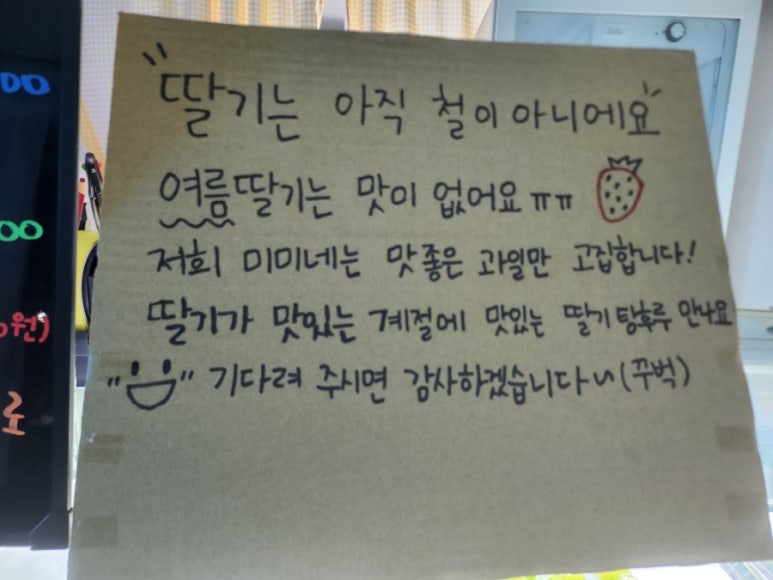 00
00
원)
로
"딸기는 아직 철이 아니에요"
여름딸기는 맛이 없어요 ㅠㅠ
저희 미미네는 맛좋은 과일만 고집합니다!
딸기가 맛있는 계절에 맛있는 딸기탕후루 만나요
기다려 주시면 감사하겠습니다~(꾸벅)